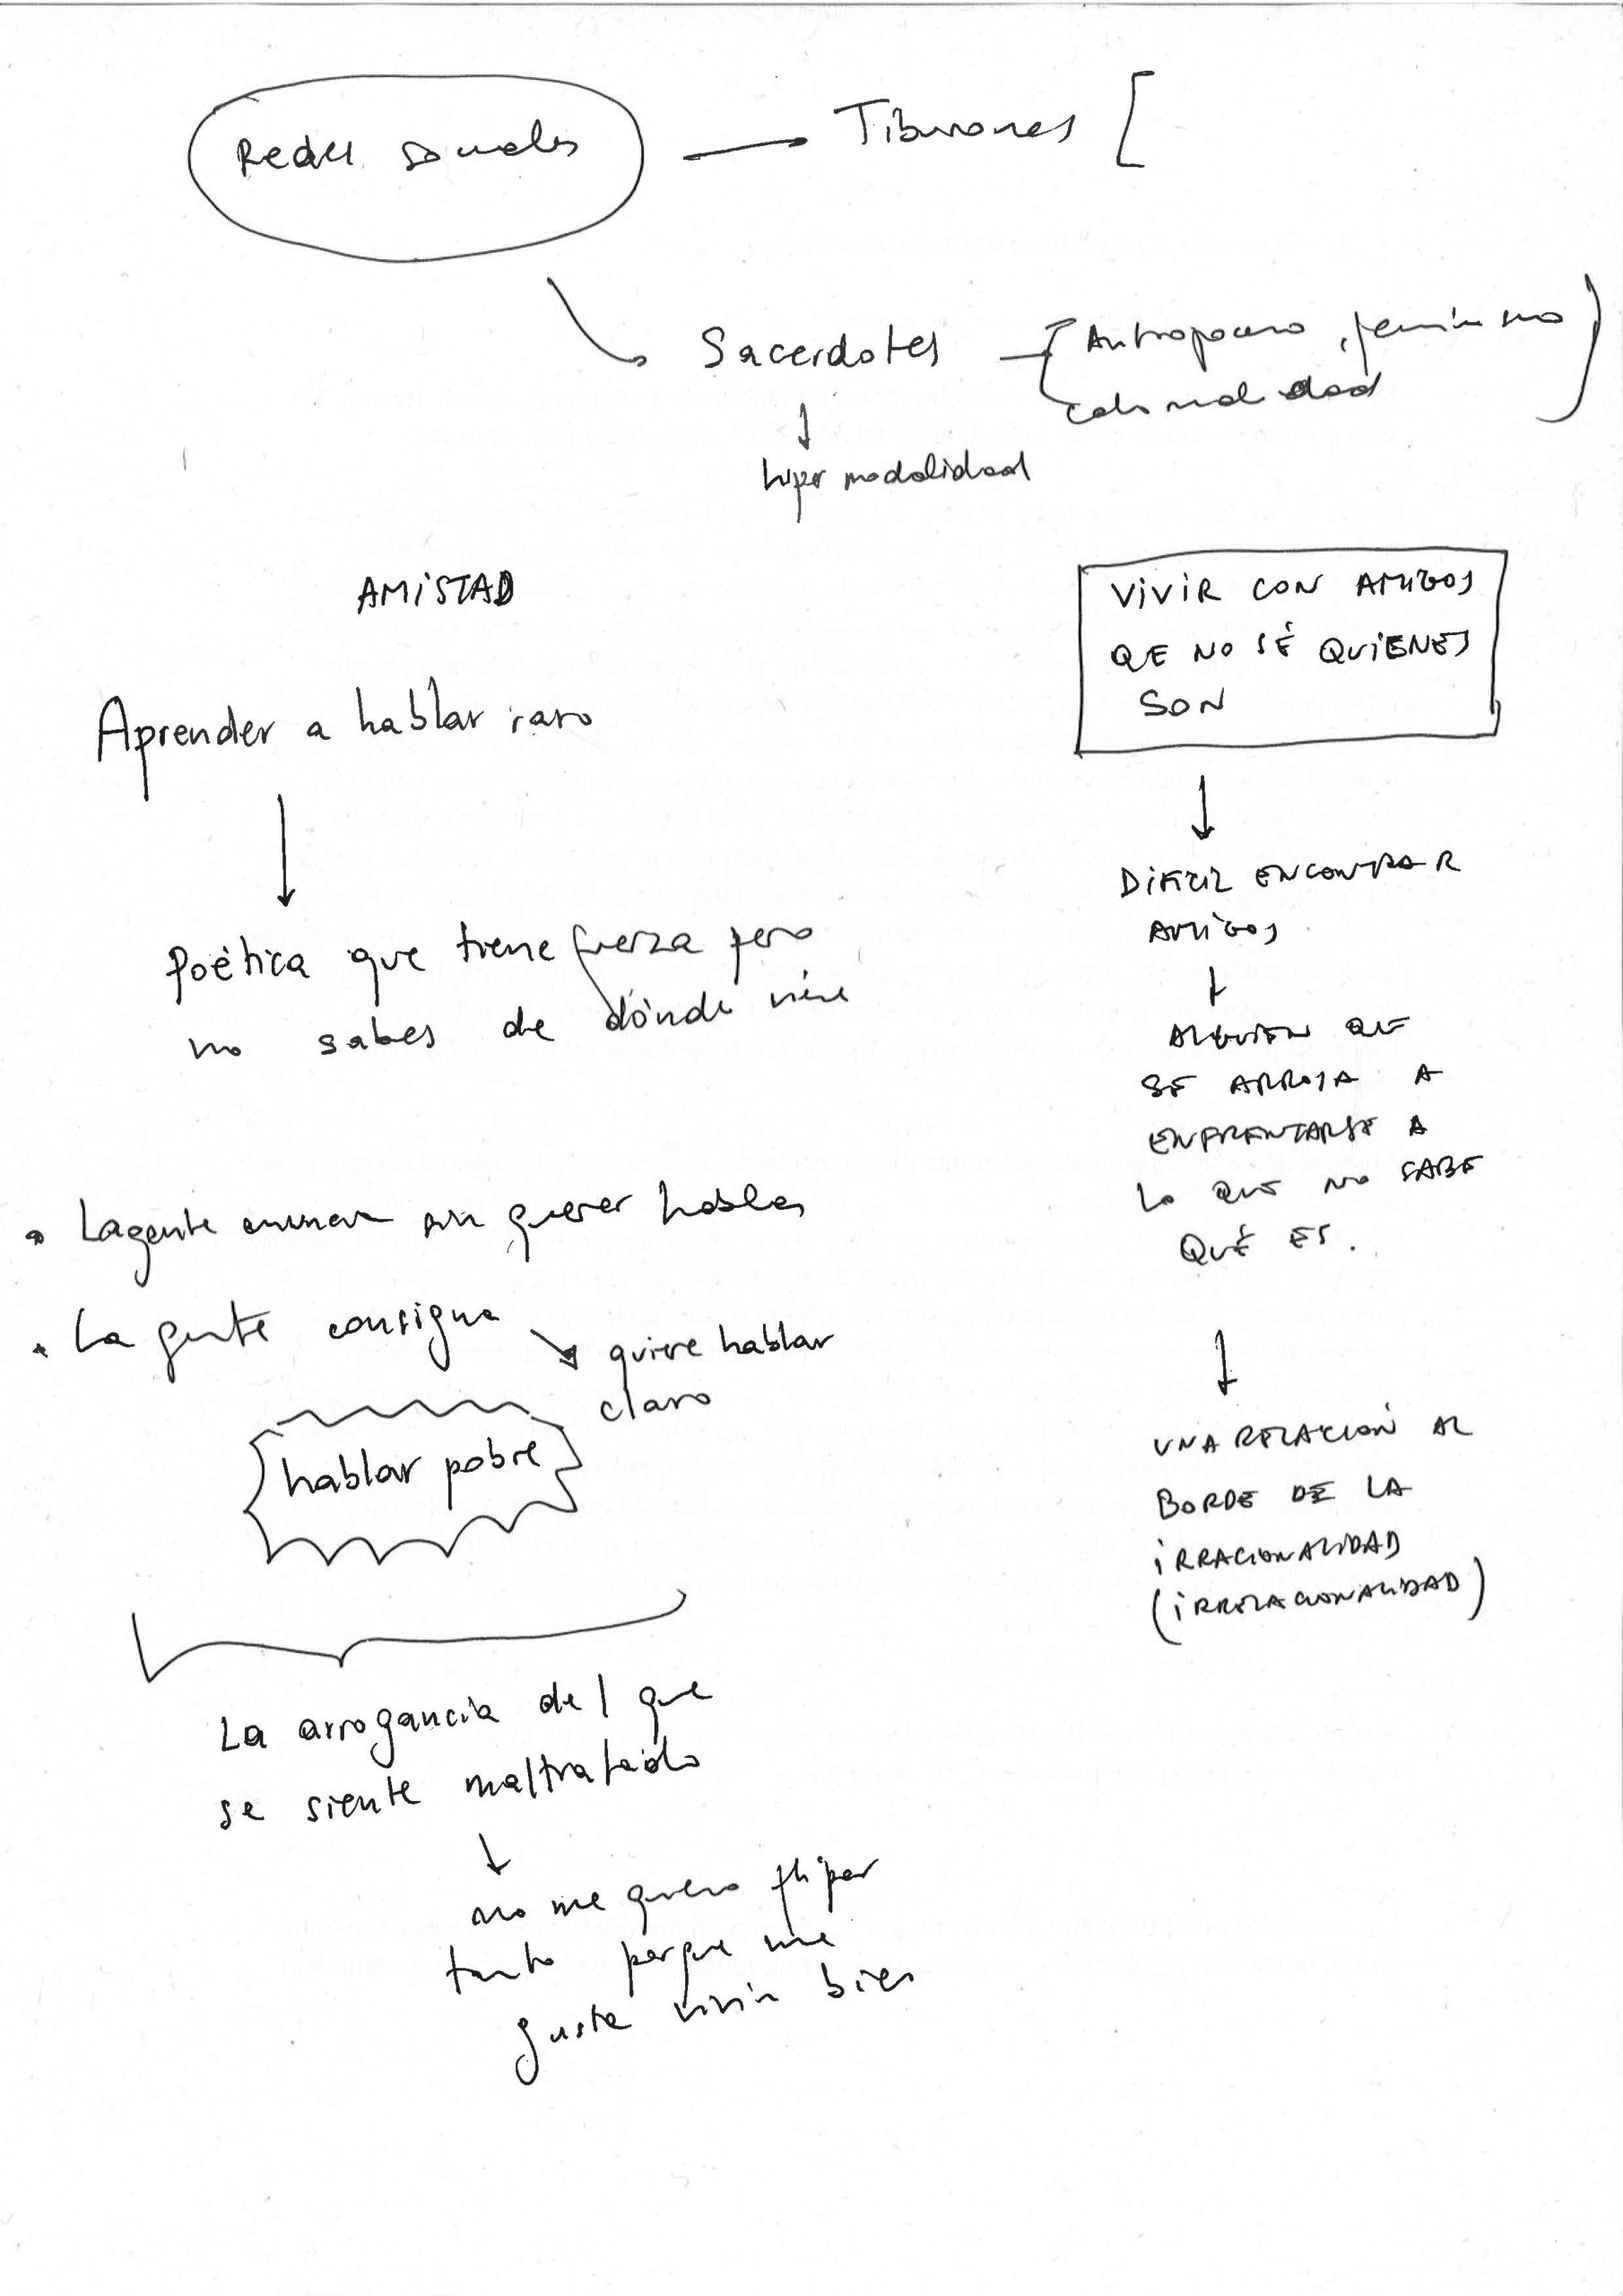 Redes sociales
Tiburones [
Sacerdotes
Antropoceno, feminismo
colonialidad
hiper modalidad
AMiSTAD
Aprender a hablar raro
Poética que tiene fuerza pero
no sabes de dónde viene
• La gente sin querer hablar
• La gente consigna
quiere hablar
claro
hablar pobre
La arrogancia del que
se siente maltratado
no me quiero flipar
tanto porque me
gusta vivir bien
ViViR CON AMIGOS
QUE NO SÉ QUiENES
SON
DiFÍCIL ENCONTRAR
AMiGOS
ALGUIEN QUE
SE ARROJA A
ENFRENTARSE A
LO QUE NO SABE
QUÉ ES.
UNA RELACIÓN AL
BORDE DE LA
iRRACIONALIDAD
(iRRELACIONALIDAD)